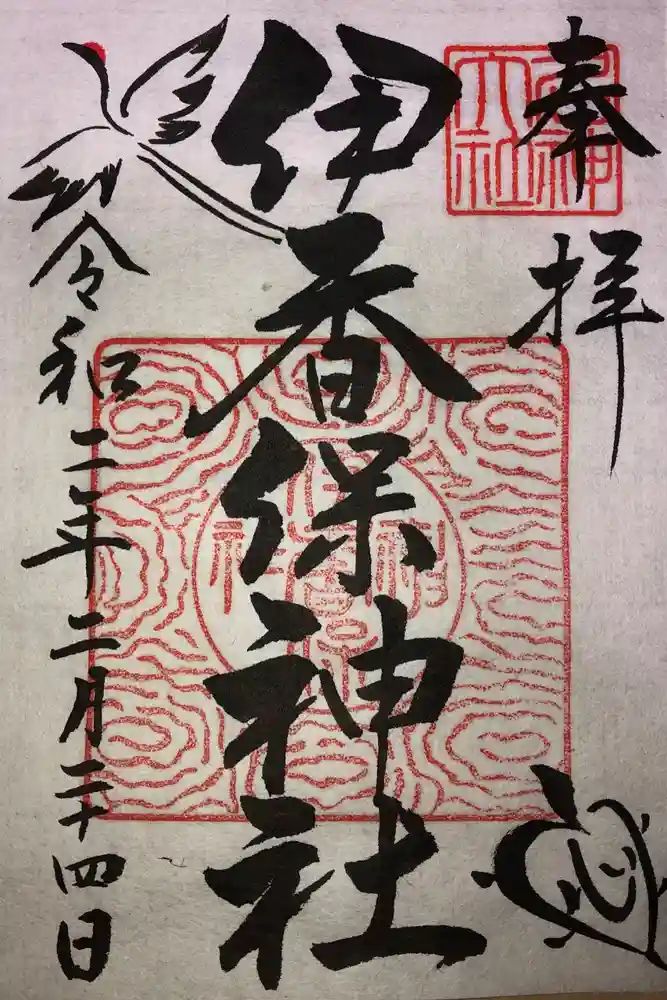 奉拝
伊香保神社
令和二年二月二十四日